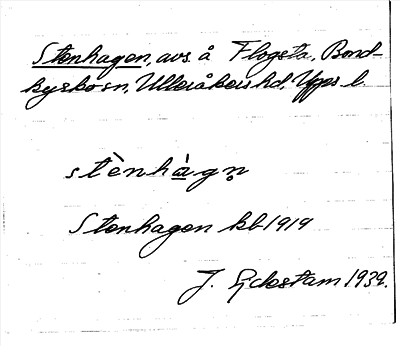 Stenhagen, avs. å Flogsta, Bond-
kyrko sn, Ulleråkers hd, Upps. l.
stènhàgn̥
Stenhagen kb 1919
J. Eckestam 1939.